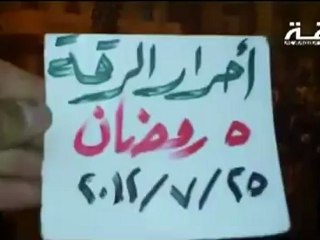 أحرار الرقة
٥ رمضان
٢٠١٢/٧/٢٥